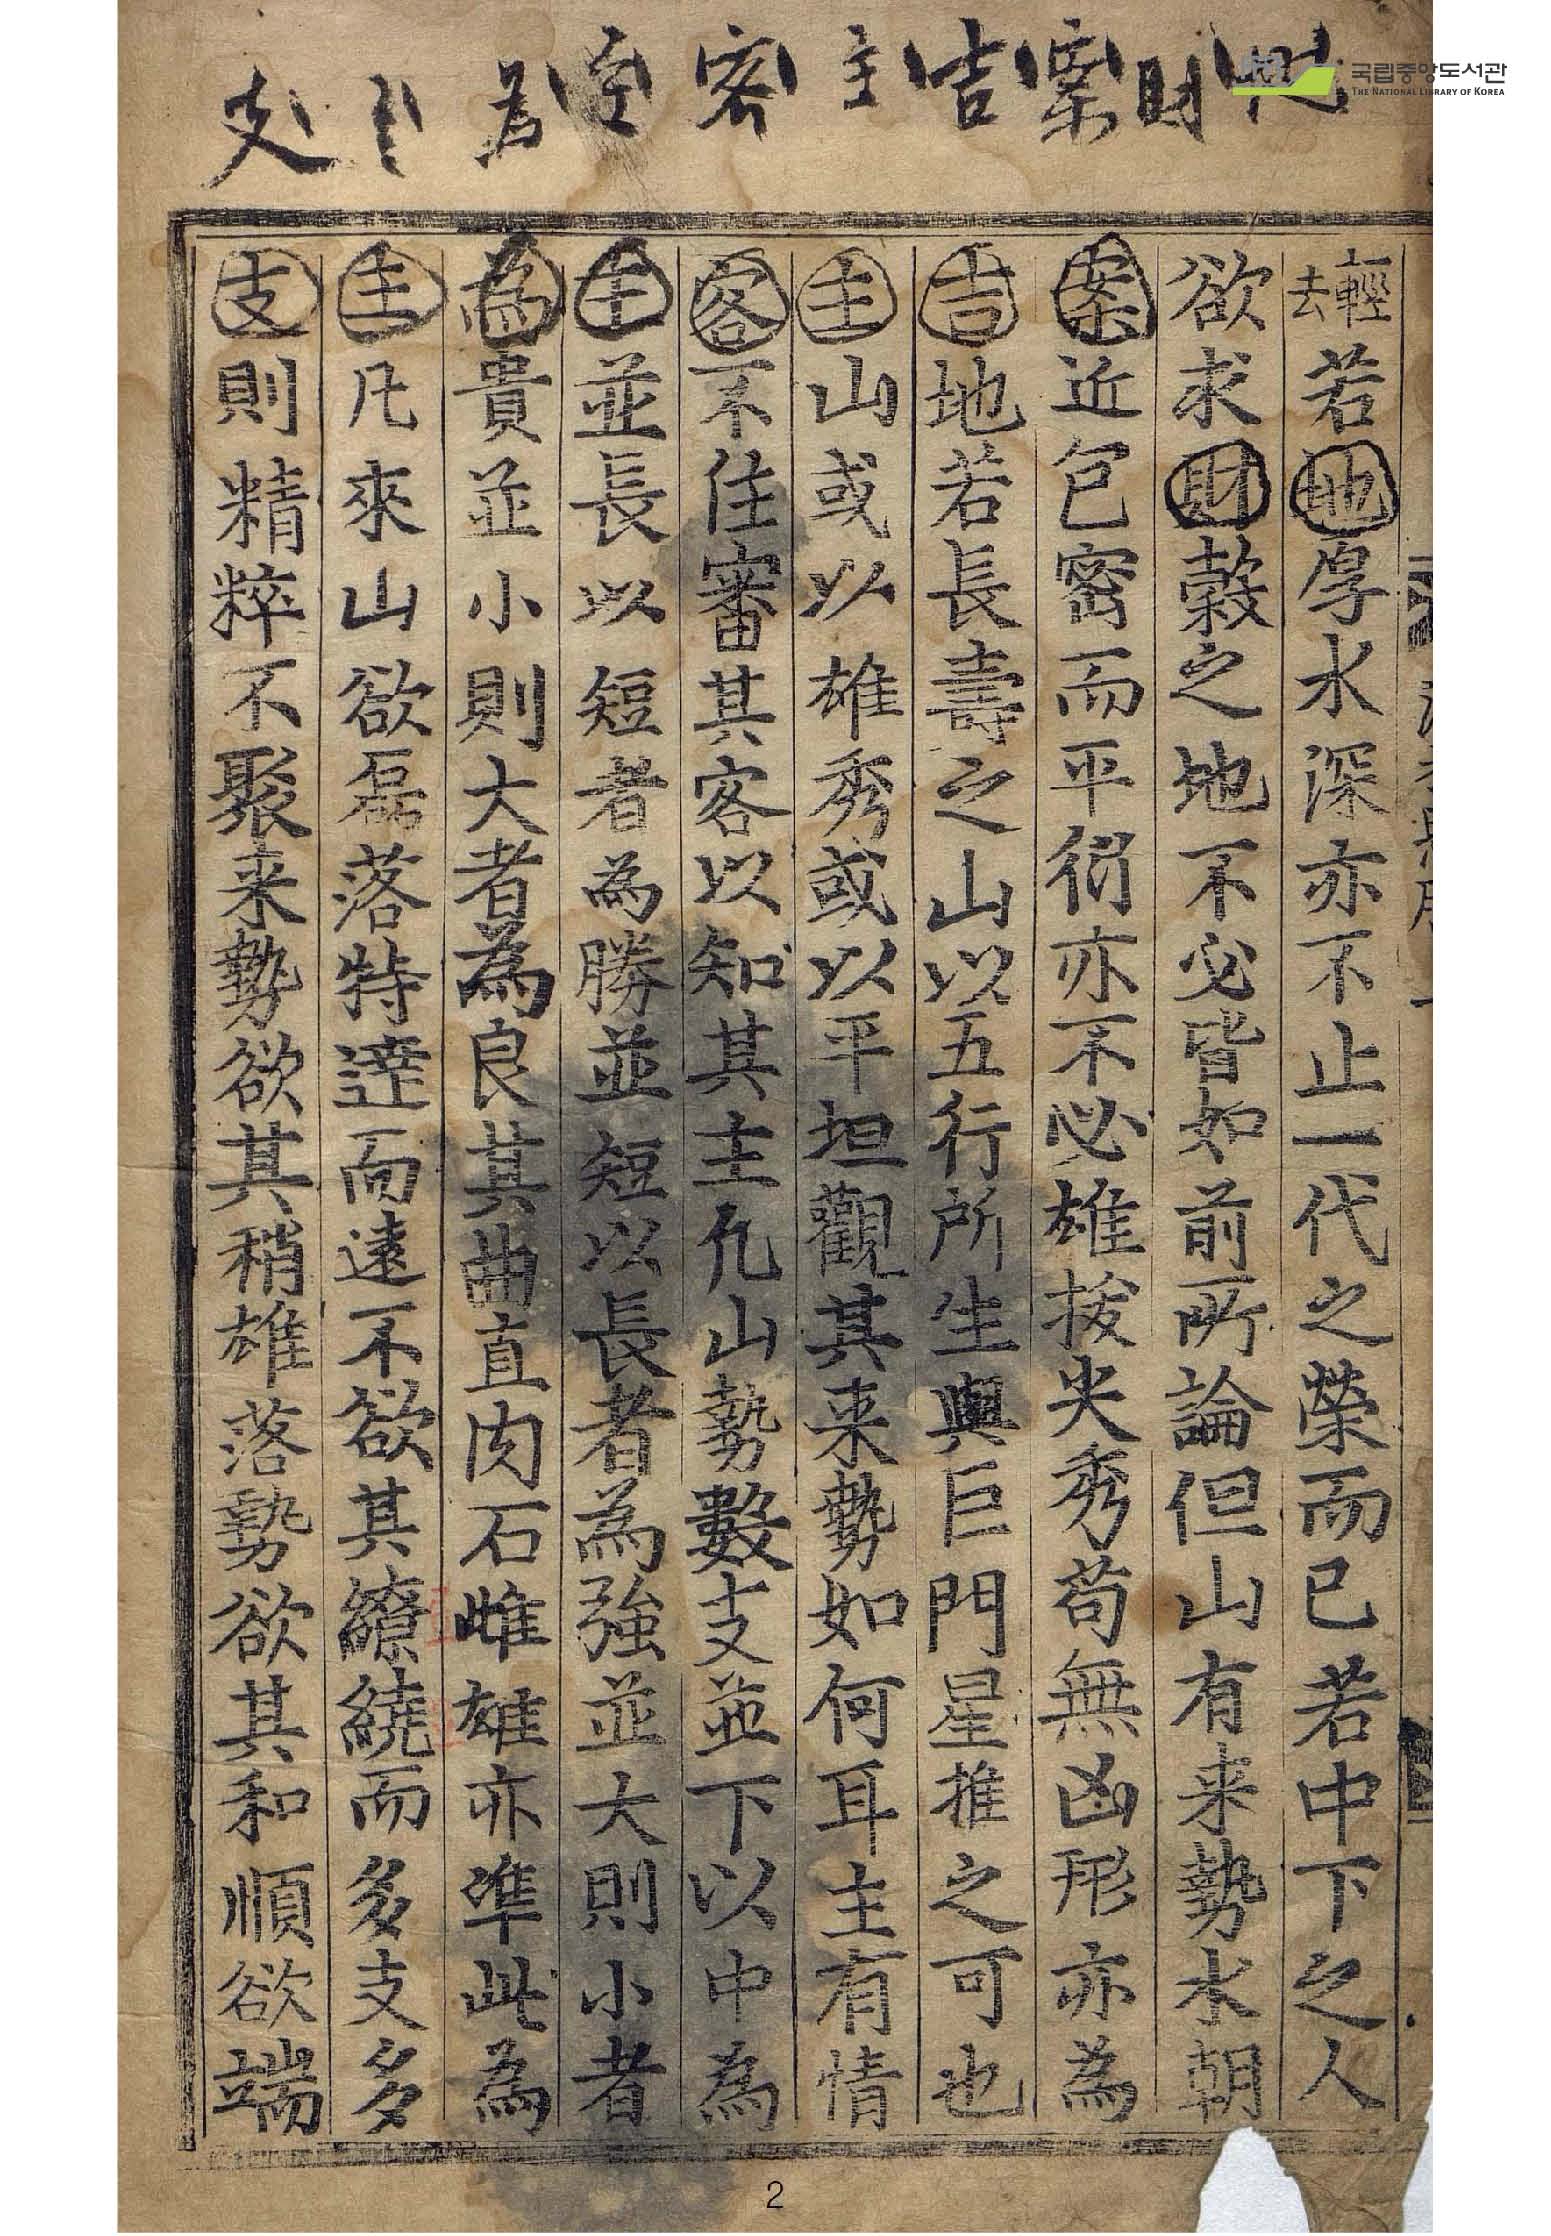 地 財 案 吉 主 客 主 為 主 支
국립중앙도서관
THE NATIONAL LIBRARY OF KOREA
輕去若地厚水深亦不止一代之榮而已若中下之人
欲求財穀之地不必皆如前所論但山有来勢水朝
案近包密而平衍亦不必雄拔尖秀苟無凶形亦為
吉地若長壽之山以五行所生與巨門星推之可也
主山或以雄秀或以平坦觀其来勢如何耳主有情
客不住審其客以知其主凡山勢數支並下以中為
主並長以短者為勝並短以長者為強並大則小者
為貴並小則大者為良其曲直肉石雌雄亦準此為
主凡來山欲磊落特達而遠不欲其繚繞而多支多
支則精粹不聚来勢欲其稍雄落勢欲其和順欲端
2